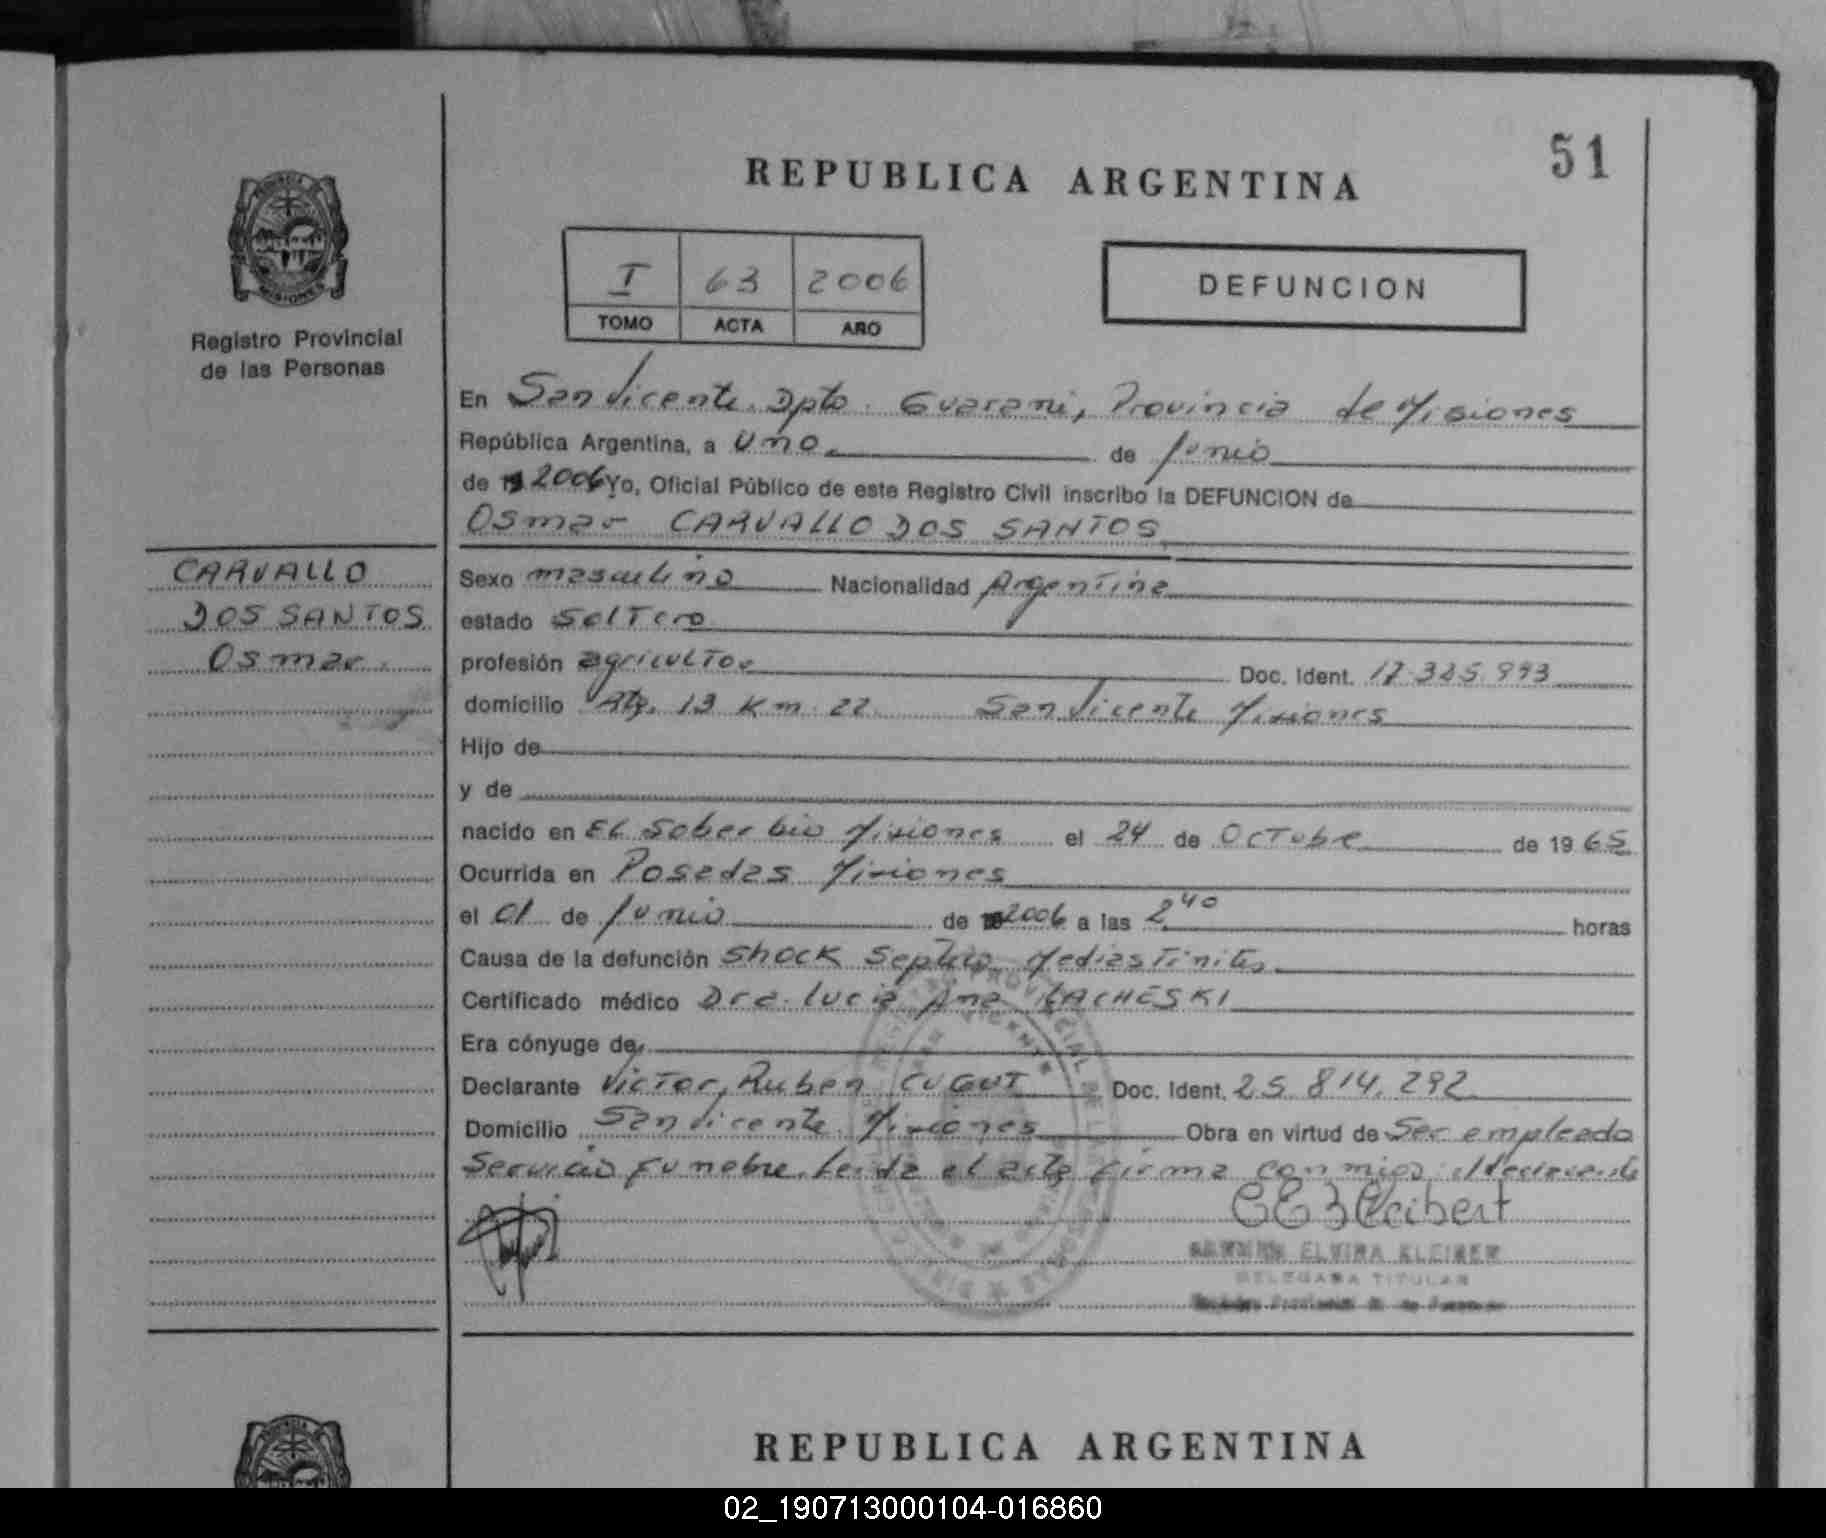 51
REPUBLICA ARGENTINA
PROVINCIA DE
MISIONES
Registro Provincial
de las Personas
I 63 2006
TOMO ACTA AÑO
DEFUNCION
En San Vicente Dpto. Guarani, Provincia de Misiones
República Argentina, a uno de Junio
de 19 2006 Yo, Oficial Público de este Registro Civil inscribo la DEFUNCION de
Osmar CARVALLO DOS SANTOS
CARVALLO
DOS SANTOS
Osmar
Sexo masculino Nacionalidad Argentina
estado Soltero
profesión agricultor Doc. Ident.
domicilio 13 Km 22 San Vicente Misiones
Hijo de
y de
nacido en El Soberbio Misiones el 24 de Octubre de 19 65
Ocurrida en Posadas Misiones
el 01 de Junio de 2006 a las 2 40 horas
Causa de la defunción Shock Septico Mediastinitis
Certificado médico Dra. Lucia Ana KACHESKI
Era cónyuge de
Declarante Victor Ruben CUGUT Doc. Ident. 25.814.292
Domicilio San Vicente Misiones Obra en virtud de Ser empleado
Servicio Funebre Leida el acta firma conmigo el declarante
ELVIRA
DELEGADA TITULAR
REPUBLICA ARGENTINA
02_190713000104-016860